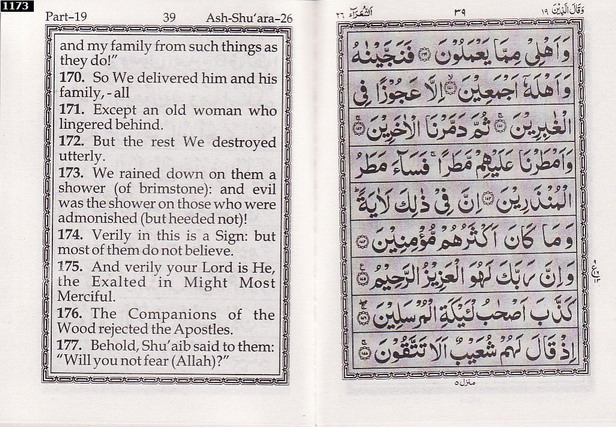 1173
Part-19 39 Ash-Shu‘ara-26
and my family from such things as
they do!”
170. So We delivered him and his
family, - all
171. Except an old woman who
lingered behind.
172. But the rest We destroyed
utterly.
173. We rained down on them a
shower (of brimstone): and evil
was the shower on those who were
admonished (but heeded not)!
174. Verily in this is a Sign: but
most of them do not believe.
175. And verily your Lord is He,
the Exalted in Might Most
Merciful.
176. The Companions of the
Wood rejected the Apostles.
177. Behold, Shu‘aib said to them:
“Will you not fear (Allah)?”
وَقَالَ الَّذِيْنَ ١٩ ٣٩ اَلشُّعَرَآء ٢٦
وَاَهْلِىْ مِمَّا يَعْمَلُوْنَ ﴿١٦٩﴾ فَنَجَّيْنٰهُ
وَاَهْلَهٗٓ اَجْمَعِيْنَ ﴿١٧٠﴾ اِلَّا عَجُوْزًا فِى
الْغٰبِرِيْنَ ﴿١٧١﴾ ثُمَّ دَمَّرْنَا الْاٰخَرِيْنَ ﴿١٧٢﴾
وَاَمْطَرْنَا عَلَيْهِمْ مَّطَرًا ۚ فَسَآءَ مَطَرُ
الْمُنْذَرِيْنَ ﴿١٧٣﴾ اِنَّ فِىْ ذٰلِكَ لَاٰيَةً ؕ
وَمَا كَانَ اَكْثَرُهُمْ مُّؤْمِنِيْنَ ﴿١٧٤﴾
وَاِنَّ رَبَّكَ لَهُوَ الْعَزِيْزُ الرَّحِيْمُ ﴿١٧٥﴾
كَذَّبَ اَصْحٰبُ لْئَيْكَةِ الْمُرْسَلِيْنَ ﴿١٧٦﴾
اِذْ قَالَ لَهُمْ شُعَيْبٌ اَلَا تَتَّقُوْنَ ﴿١٧٧﴾
منزل ٥